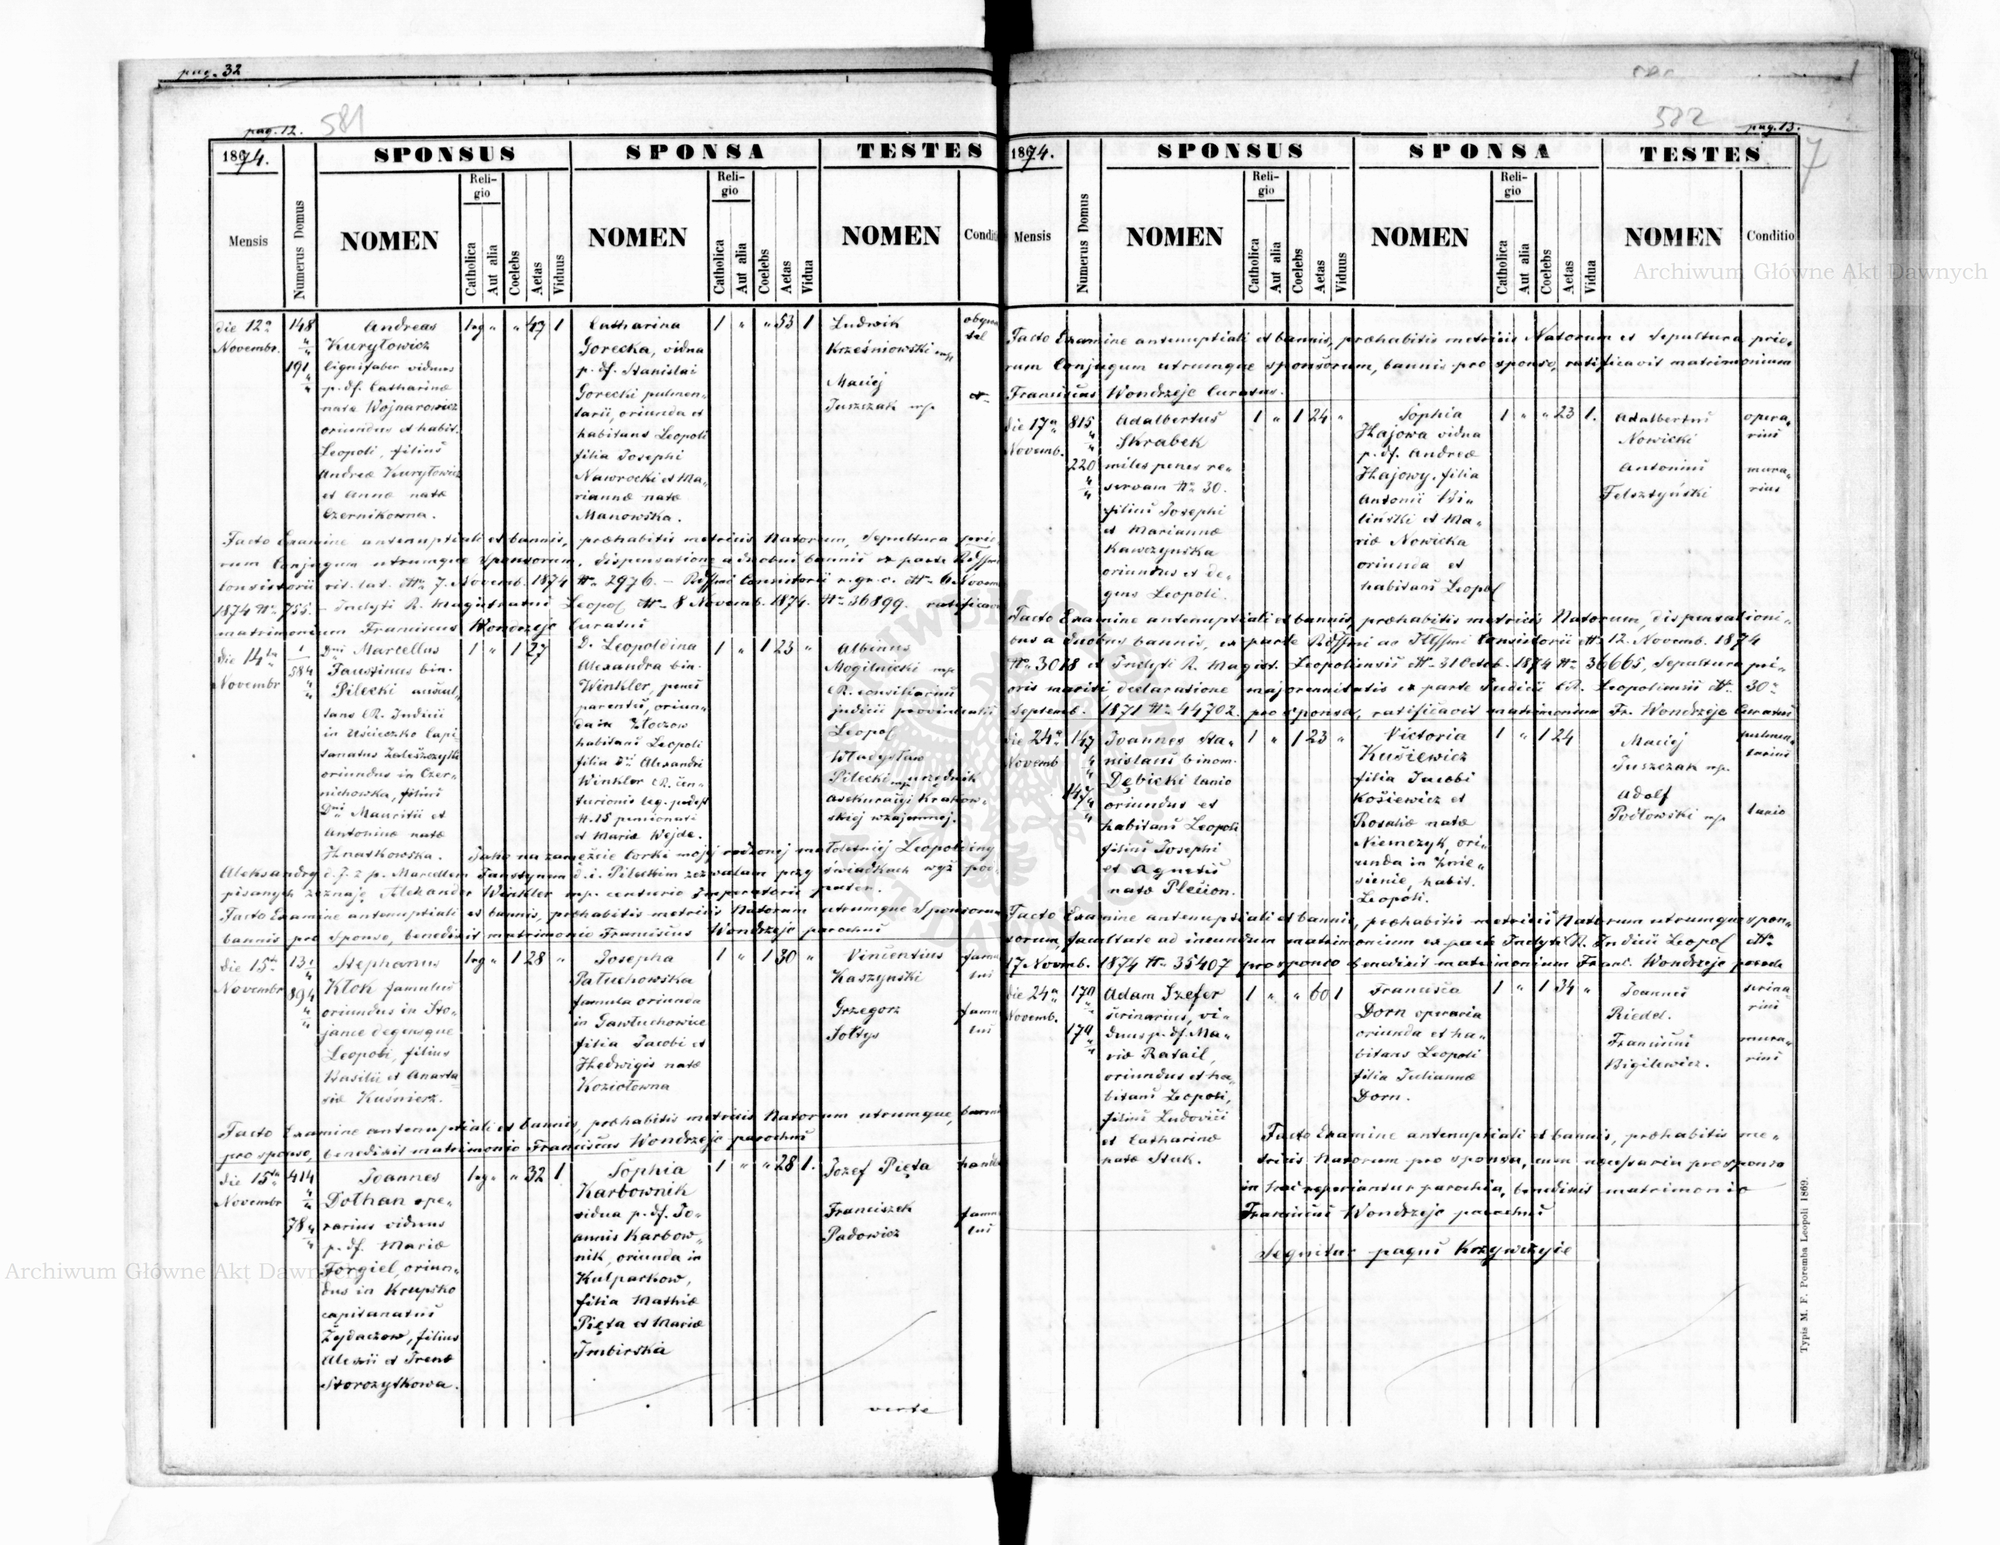 pag. 32
pag. 12.
581
1874.
SPONSUS
SPONSA
TESTES
Mensis
Numerus Domus
NOMEN
Religio
Catholica
Aut alia
Coelebs
Aetas
Viduus
NOMEN
Religio
Catholica
Aut alia
Coelebs
Aetas
Vidua
NOMEN
die 12a
Novembr.
148
191
Andreas
Kuryłowicz
lignifaber viduus
p. df. Catharinæ
natæ Wojnarowicz
oriundus et habit.
Leopoli, filius
Andreæ Kuryłowicz
et Annæ natæ
Czernikowna.
1 rg " " 43 1
Catharina
Gorecka, vidua
p. df. Stanislai
Gorecki pulmen-
tarii, oriunda et
habitans Leopoli
filia Josephi
Nawrocki et Ma-
riannæ natæ
Manowska.
1 " " 53 1
Ludwik
Krześniowski mp.
Maciej
Juszczak mp.
Facto Examine antenuptiali et bannis, præhabitis metricis Natorum, Sepultura prio-
rum Conjugum utrumque Sponsorum, dispensatione a duobus bannis ex parte Rdssmi
Consistorii rit. lat. dto 7. Novemb. 1874 No 2976. – Rdssmi Consistorii r. gr. c. dto 6 Novem
1874 No 755. – Indyti R. Magistratus Leopol dto 8 Novemb. 1874. No 36899. ratificavit
matrimonium Franciscus Wondrzejc Curatus
die 14ta
Novembr
1
584
Dnus Marcellus
Faustinus bin.
Pilecki auscul-
tans CR. Judicii
in Uścieczko Capi-
tanatus Zaleszczyki
oriundus in Czer-
nichowka, filius
Dni Mauritii et
Antoninæ natæ
Hnatkowska.
1 " 1 27
D. Leopoldina
Alexandra bin.
Winkler, penes
parentes, oriun-
da in Złoczow
habitans Leopoli
filia Dni Alexandri
Winkler CR. Cen-
turionis leg. pedest
N. 15 pensionati
et Mariæ Wejde.
1 " 1 23 "
Albinus
Mogilnicki mp
CR. consiliarius
judicii provincialis
Leopol
Władysław
Pilecki mp urzędnik
asekuracyi Krakow-
skiej wzajemnej.
Jako na zamęźcie Corki mojej rodzonej małoletniej Leopoldiny
Aleksandry d. J. z p. Marcellem Faustynem d. i. Pileckim zezwalam przy świadkach wyż pod
pisanych zeznaję Alexander Winkler mp. centurio Imperatoris pater.
Facto Examine antenuptiali et bannis, præhabitis metricis Natorum utrumque Sponsorum
bannis pro Sponso, benedixit matrimonio Franciscus Wondrzejc parochus
die 15ta
Novembr
131
894
Stephanus
Kłok famulus
oriundus in Sto-
jance degensque
Leopoli, filius
Basilii et Anasta-
siæ Kuśnierz.
1 rg " 1 28 "
Josepha
Patuchowska
famula oriunda
in Gawłuchowice
filia Jacobi et
Hedwigis natæ
Koziołowna
1 " 1 30 "
Vincentius
Kaszynski
Grzegorz
Sołtys
famu
lus
famu
lus
Facto Examine antenuptiali et bannis, præhabitis metricis Natorum utrumque, bannis
pro sponso, benedixit matrimonio Franciscus Wondrzejc parochus
die 15ta
Novembr
414
78
Joannes
Dothan ope-
rarius viduus
p. df. Mariæ
Forgiel, oriun-
dus in Krupsko
capitanatus
Żydaczow, filius
Alexii et Irenæ
Storozytkowa.
1 rg " " 32 1
Sophia
Karbownik
vidua p. df. Jo-
annis Karbow-
nik, oriunda in
Kulparkow,
filia Mathiæ
Pięta et Mariæ
Imbirska
1 " " 28 1.
Jozef Pięta
Franciszek
Padowicz
famu
lus
verte
522
pag. 13.
7
1874.
SPONSUS
SPONSA
TESTES
Mensis
Numerus Domus
NOMEN
Religio
Catholica
Aut alia
Coelebs
Aetas
Viduus
NOMEN
Religio
Catholica
Aut alia
Coelebs
Aetas
Vidua
NOMEN
Conditio
Facto Examine antenuptiali et bannis, præhabitis metricis Natorum et Sepultura prio-
rum Conjugum utrumque sponsorum, bannis pro sponso, ratificavit matrimonium
Franciscus Wondrzejc Curatus.
die 17a
Novemb.
815
220
Adalbertus
Skrabek
miles penes re-
servam No 30.
filius Josephi
et Mariannæ
Kawczynska
oriundus et de-
gens Leopoli.
1 " 1 24 "
Sophia
Hajowa vidua
p. df. Andreæ
Hajowy, filia
Antonii Bi-
liński et Ma-
riæ Nowicka
oriunda et
habitans Leopol
1 " " 23 1.
Adalbertus
Nowicki
Antonius
Felsztyński
opera-
rius
mura-
rius
Facto Examine antenuptiali et bannis, præhabitis metricis Natorum, dispensationi-
bus a duobus bannis, ex parte Rdssmi ac Illssmi Consistorii dto 12. Novemb. 1874
No 3018 et Indyti R. Magist. Leopoliensis dto 31 Octob. 1874 No 36665, Sepultura pri-
oris mariti, declaratione majorennitatis ex parte Judicii CR. Leopoliensis dto 30a
Septemb. 1871 No 44702. pro sponsa, ratificavit matrimonium Fr. Wondrzejc Curatus
die 24a
Novemb
147
147
Joannes Sta-
nislaus binom.
Dębicki lanio
oriundus et
habitans Leopoli
filius Josephi
et Agnetis
natæ Plecion.
1 " 1 23 "
Victoria
Kusiewicz
filia Jacobi
Kosiewicz et
Rosaliæ natæ
Niemczyk, ori-
unda in Znie-
sienie, habit.
Leopoli.
1 " 1 24
Maciej
Juszczak mp.
Adolf
Podłowski mp
pulmen-
tarius
lanio
Facto Examine antenuptiali et bannis, præhabitis metricis Natorum utrumque spon-
sorum, facultate ad ineundum matrimonium ex parte Indyti R. Judicii Leopol dto
17 Novemb. 1874 No 35407 pro sponso benedixit matrimonium Franc. Wondrzejc paroch
die 24a
Novemb.
170
174
Adam Szefer
scrinarius, vi-
duus p. df. Ma-
riæ Ratail,
oriundus et ha-
bitans Leopoli,
filius Ludovici
et Catharinæ
natæ Stuk.
1 " " 60 1
Francisca
Dorn operaria
oriunda et ha-
bitans Leopoli
filia Juliannæ
Dorn.
1 " 1 34 "
Joannes
Riedel.
Franciscus
Bigilewicz.
scrina-
rius
mura-
rius
Facto Examine antenuptiali et bannis, præhabitis me-
tricis Natorum pro sponsa, cum necessaria pro sponso
in hac reperiantur parochia, benedixit matrimonio
Franciscus Wondrzejc parochus
Sequitur pagus Krzywczyce
Typis M. F. Poremba Leopoli 1869.
Archiwum Główne Akt Dawnych
Archiwum Główne Akt Dawnych
ARCHIWUM GŁÓWNE AKT DAWNYCH